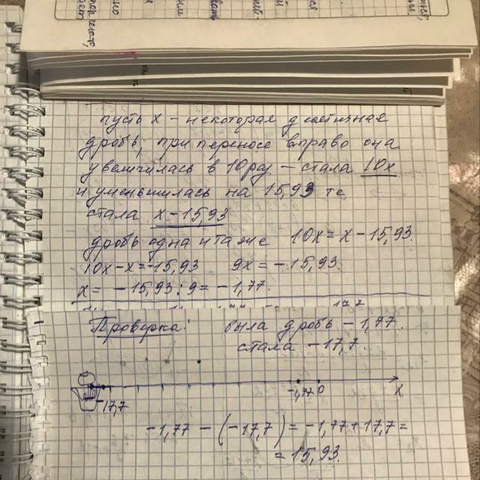 пусть x – некоторая десятичная
дробь, при переносе вправо она
увеличилась в 10 раз – стала 10x
и уменьшилась на 15,93 те
стала x – 15,93
дробь одна и та же 10x = x – 15,93.
10x – x = –15,93 9x = –15,93.
x = –15,93 : 9 = –1,77.
Проверка: была дробь –1,77.
стала –17,7.
–17,7 –1,77 0 x
–1,77 – (–17,7) = –1,77 + 17,7 =
= 15,93.